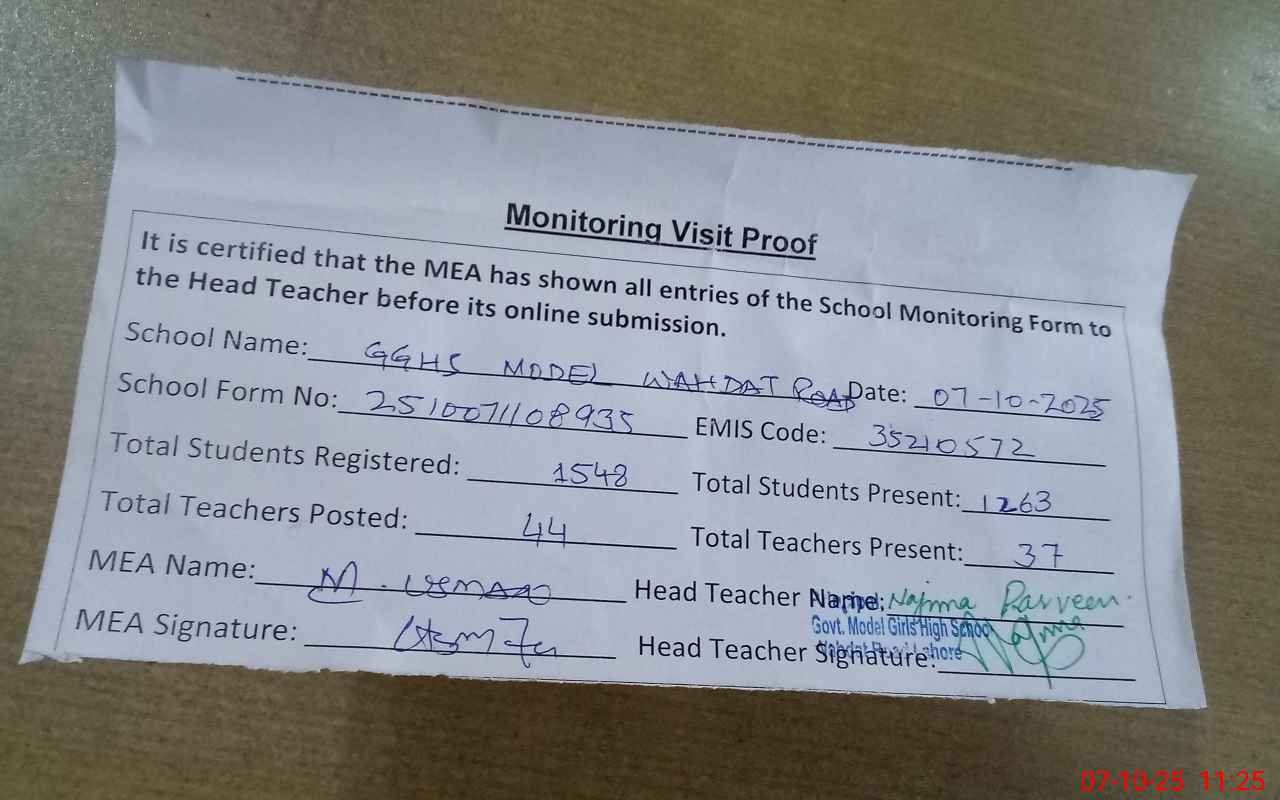 Monitoring Visit Proof
It is certified that the MEA has shown all entries of the School Monitoring Form to
the Head Teacher before its online submission.
School Name: GGHS MODEL WAHDAT ROAD Date: 07-10-2025
School Form No: 2510071108935 EMIS Code: 35210572
Total Students Registered: 1548 Total Students Present: 1263
Total Teachers Posted: 44 Total Teachers Present: 37
MEA Name: M. Head Teacher Name: Najma Parveen
Govt. Model Girls High School
MEA Signature: Head Teacher Signature: Najma
07-10-25 11:25